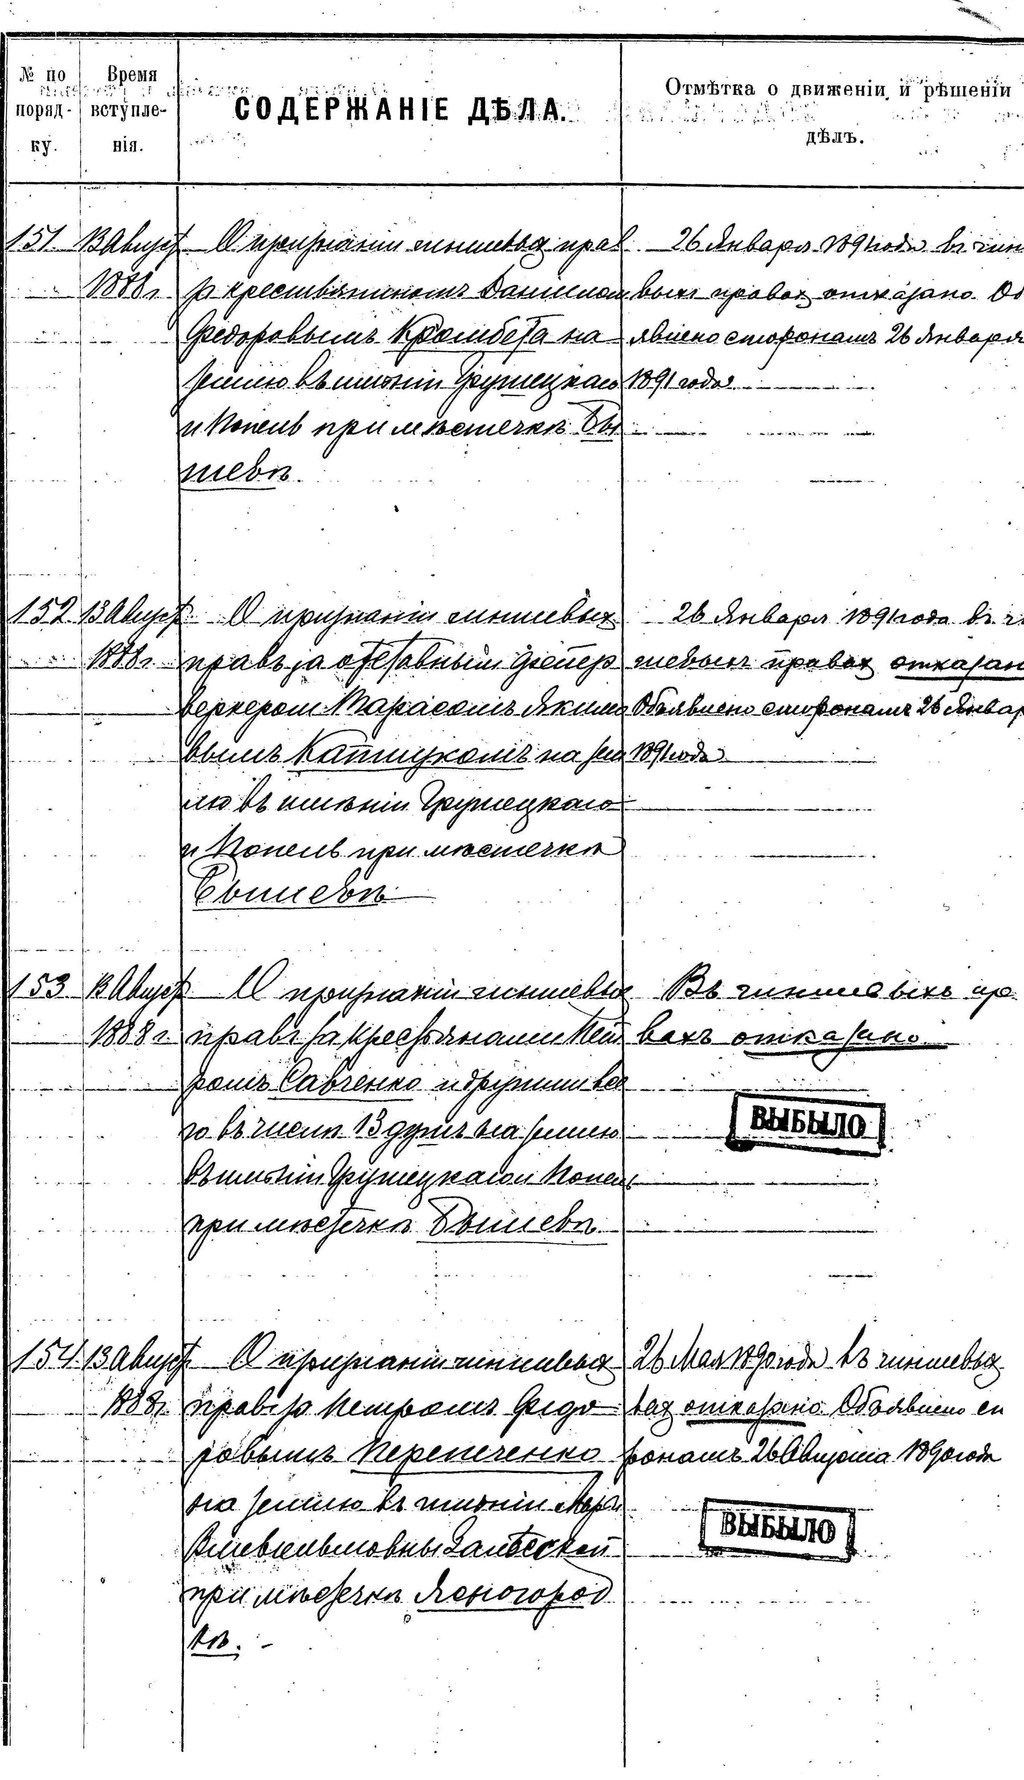 № по поряд- ку.
Время вступле- нія.
СОДЕРЖАНІЕ ДѢЛА.
Отмѣтка о движеніи и рѣшеніи
дѣлъ.
151 13 Август
1888 г.
О признаніи чиншевых прав
за крестьянином Даніилом
Федоровымъ на
землю въ имѣніи Грушецкаго
и Копець при мѣстечкѣ Бы
шевѣ.
26 Января 1891 года въ чин
выхъ правах отказано Об
явлено сторонамъ 26 Января
1891 года
152 13 Август
1888 г.
О признаніи чиншевых
правъ за отставным фейер
веркером Тарасомъ Якимо
вымъ на зем
лю въ имѣніи Грушецкаго
и Копець при мѣстечкѣ
Бышевѣ
26 Января 1891 года въ чи
шевыхъ правах отказан
Объявлено сторонамъ 26 Январ
1891 года
153 13 Август
1888 г.
О признаніи чиншевых
правъ за крестьянами Пет
ромъ Савченко и другими все
го въ числѣ 13 душъ на землю
въ имѣніи Грушецкаго и Копець
при мѣстечкѣ Бышевѣ
Въ чиншевыхъ пра
вахъ отказано
ВЫБЫЛО
154 13 Август
1888 г.
О признаніи чиншевых
правъ за Петромъ Федо
ровымъ Перепеченко
на землю въ имѣніи Мар
Залѣсской
при мѣстечкѣ Ясногород
кѣ.
26 Мая 1890 года въ чиншевых
вах отказано Объявлено сто
ронамъ 26 Августа 1890 года
ВЫБЫЛО